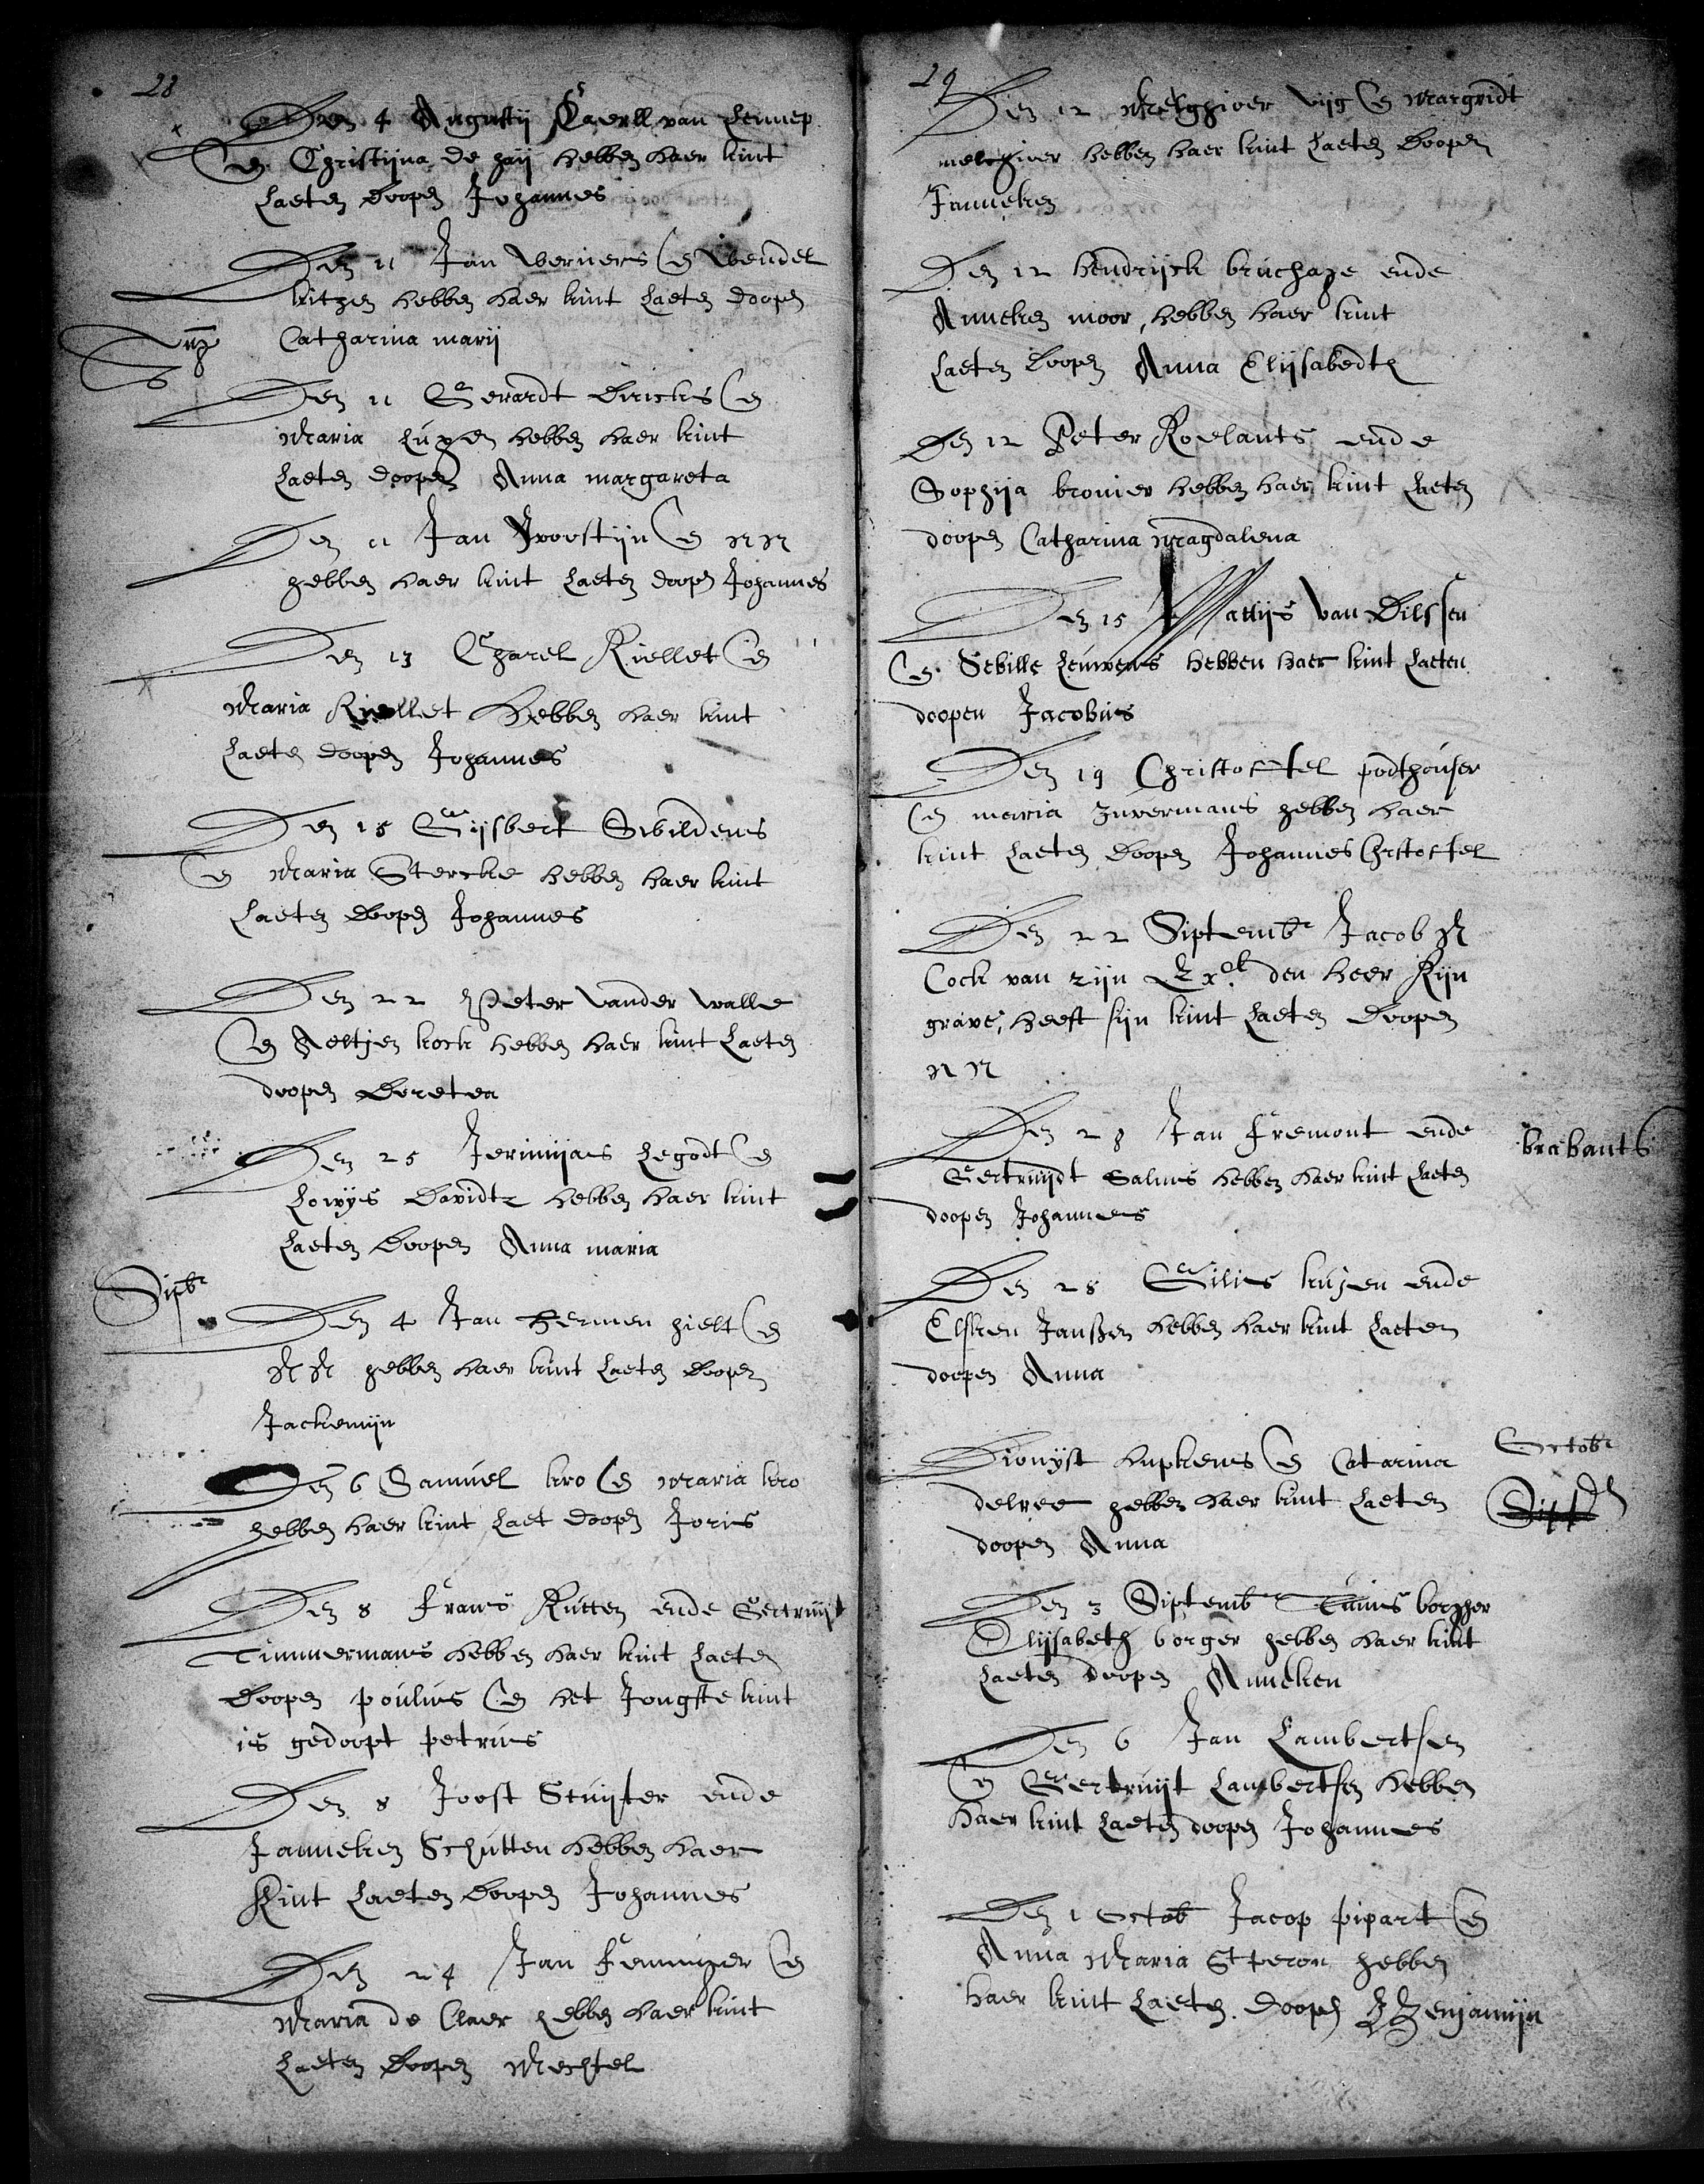 28
Den 4 Augustij Caerll van Lennep
en Christijna de haij hebben haer kint
Laeten doopen Johannes
Den 11 Jan Werners en Wendel
kitzen hebben haer kint Laeten doopen
Catharina marij
Den 11 Gerardt Dircks en
Maria Luxen hebben haer kint
Laeten doopen Anna margareta
Den 11 Jan Joostijn en NN
hebben haer kint Laeten doopen Johannes
Den 13 Charel Riellet en
Maria Riellet Hebben haer kint
Laeten doopen Johannes
Den 15 Gijsbert
en Maria Stercke hebben haer kint
Laeten doopen Johannes
Den 22 Peter vander walle
en Aeltjen kock hebben haer kint Laeten
doopen Doretea
Den 25 Jerimijas Legodt en
Lowijs Davidtz hebben haer kint
Laeten Doopen Anna maria
Sipbr
Den 4 Jan Hermen hielt en
NN hebben haer kint Laeten Doopen
Jackemijn
Den 6 Samuel kro en Maria kro
hebben haer kint Laet doopen Joris
Den 8 Frans Rutten ende Gertruijt
Timmermans hebben haer kint Laeten
Doopen poulus en het Jongste kint
is gedoopt petrus
Den 8 Joost Stuijter ende
Janneken Schutten hebben haer
Kint Laeten Doopen Johannes
Den 24 Jan en
Maria de Claer hebben haer kint
Laeten Doopen Mechtel
29
Den 12 Melghioer vijg en Margridt
melchioer hebben haer kint Laeten Doopen
Janneken
Den 12 Hendrijck bruchaze ende
Anneken moor, hebben haer kint
Laeten Doopen Anna Elijsabedth
Den 12 Peter Roelants ende
Sophija bronier hebben haer kint Laeten
doopen Catharina Magdalena
Den 15 Mattijs van Dilssen
en Sebille Leuwens hebben haer kint Laeten
doopen Jacobus
Den 19 Christoffel podthouser
en maria Zuvermans hebben haer
kint Laeten Doopen Johannes Christoffel
Den 22 Siptembr Jacob N
Cock van zijn Exel den heer Rijn
grave, heeft sijn kint Laeten Doopen
NN
Den 28 Jan Fremont ende
brabants
Gertruijdt Salms hebben haer kint Laeten
doopen Johannes
Den 28 Gilius ende
Elsken Janssen hebben haer kint Laeten
doopen Anna
Octobr
Dionijst Hupkens en Catarina
delree hebben haer kint Laeten
doopen Anna
Den 3 Siptemb Tunis borgher
Elijsabeth borger hebben haer kint
Laeten doopen Anneken
Den 6 Jan Lambertsen
en Gertruijt Lambertsen hebben
haer kint Laeten doopen Johannes
Den 1 Octob Jacop pipart en
Anna Maria hebben
haer kint Laeten Doopen Benjamijn